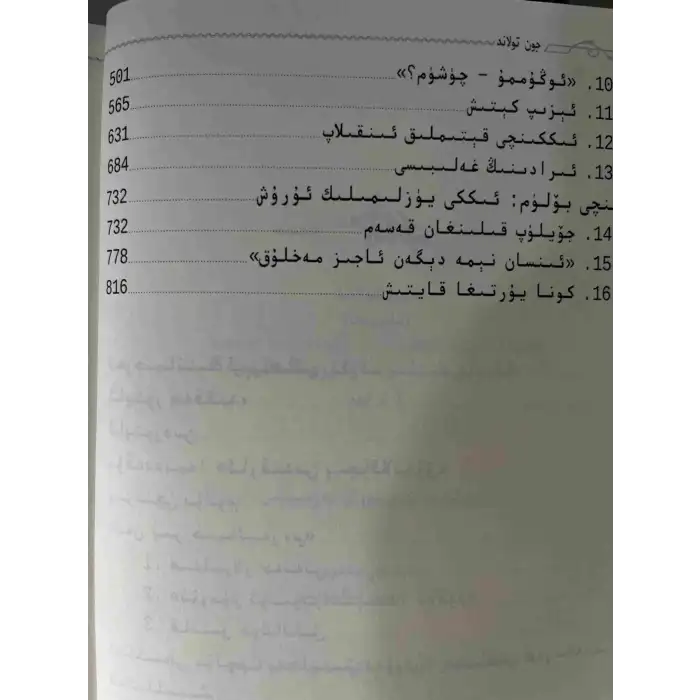 جون تولاند
10. «ئوڭۇممۇ - چۈشۈم؟» 501
11. ئېزىپ كېتىش 565
12. ئىككىنچى قېتىملىق ئىنقىلاپ 631
13. ئىرادىنىڭ غەلىبىسى 684
ىنچى بۆلۈم: ئىككى يۈزلىمىلىك ئۇرۇش 732
14. جۆيلۈپ قىلىنغان قەسەم 732
15. «ئىنسان نېمە دېگەن ئاجىز مەخلۇق» 778
16. كونا يۇرتىغا قايتىش 816